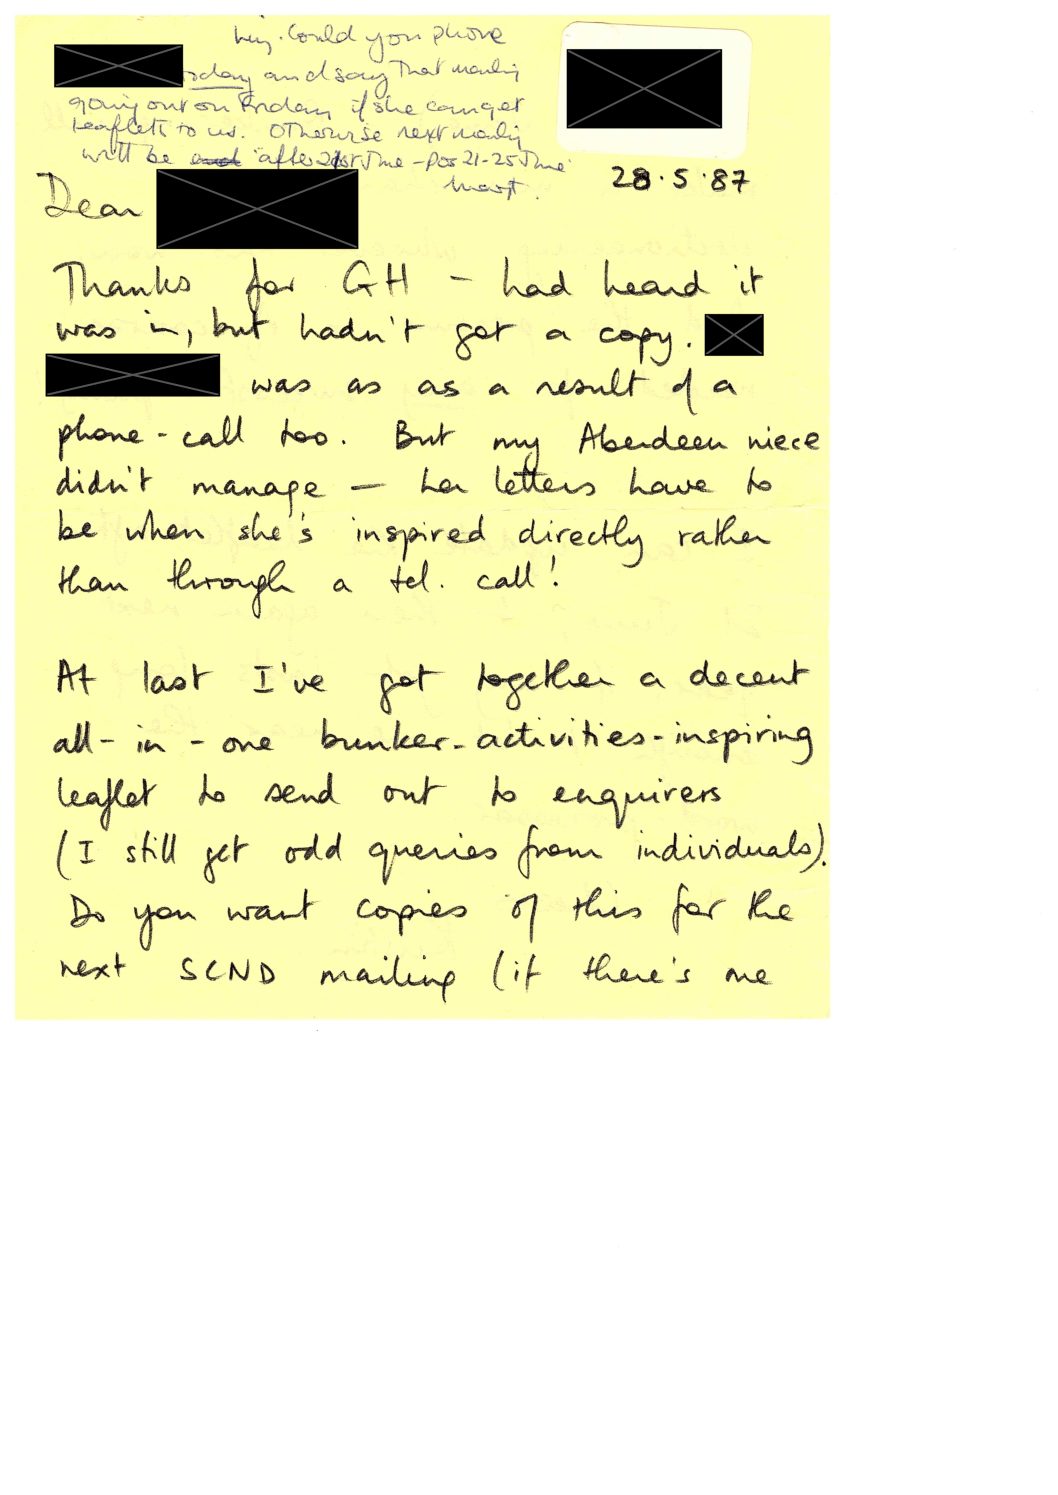 Could you phone
and say that mailing
going out on Friday if she can get
leaflets to us. Otherwise next mailing
will be after 21st June - pos 21-25 June
28.5.87
Dear
Thanks for GH - had heard it
was in, but hadn't got a copy.
was as as a result of a
phone-call too. But my Aberdeen niece
didn't manage — her letters have to
be when she's inspired directly rather
than through a tel. call!
At last I've got together a decent
all-in-one bunker-activities-inspiring
leaflet to send out to enquirers
(I still get odd queries from individuals).
Do you want copies of this for the
next SCND mailing (if there's one